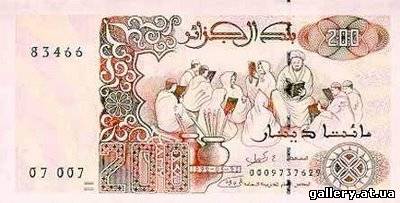 83466
بنك الجزائر
200
مائتا دينار
07 007
200
0009737629
gallery.at.ua